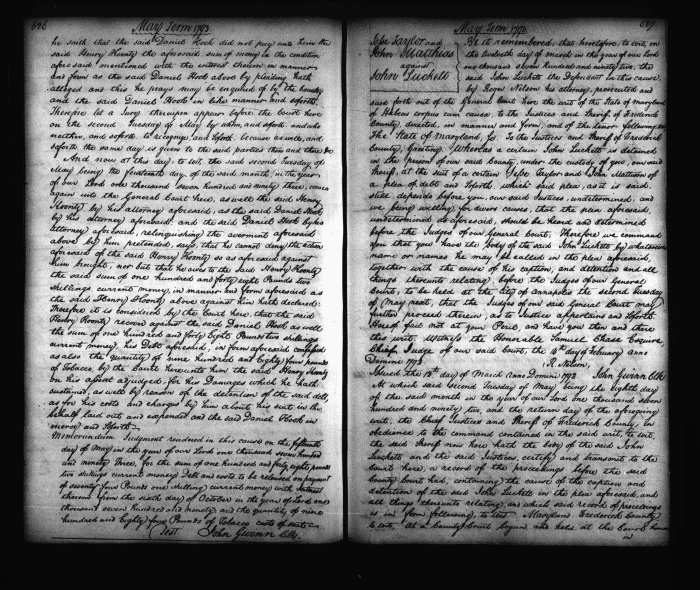 646
May Term 1793
he saith that the said Daniel Hook did not pay unto him the
said Henry Koontz the aforesaid sum of money in the condition
aforesaid mentioned with the interest thereon in manner
and form as the said Daniel Hook above by pleading hath
alleged and this he prays may be enquired of by the County
and the said Daniel Hook in like manner and soforth.
Therefore let a Jury thereupon appear before the Court here
on the second Tuesday of May, by whom and soforth, and who
neither, and soforth, to recognize, and soforth, because as well, and
soforth the same day is given to the said parties then and there &c
And now at this day, to wit, the said second Tuesday of
May being the fourteenth day of the said month, in the year
of our Lord one thousand seven hundred and ninety three, comes
again into the General Court here, as well the said Henry
Koontz by his attorney aforesaid, as the said Daniel Hook
by his attorney aforesaid and the said Daniel Hook by his
attorney aforesaid, relinquishing the averment aforesaid
above by him pretended, says, that he cannot deny the action
aforesaid of the said Henry Koontz so as aforesaid against
him brought, nor but that he owes to the said Henry Koontz
the said sum of one hundred and forty eight Pounds two
shillings current money, in manner and form aforesaid as
the said Henry Koontz above against him hath declared:
Therefore it is considered by the Court here, that the said
Henry Koontz recover against the said Daniel Hook as well
the sum of one hundred and forty eight Pounds two shillings
current money, his Debt aforesaid, in form aforesaid confessed
as also the quantity of nine hundred and Eighty four pounds
of Tobacco, by the Court here unto him the said Henry Koontz
on his assent adjudged, for his Damages which he hath
sustained, as well by reason of the detention of the said debt,
as for his costs and charges by him about his suit in this
behalf laid out and expended and the said Daniel Hook in
mercy and soforth
Memorandum Judgment rendered in this cause on the fifteenth
day of May in the year of our Lord one thousand seven hundred
and ninety Three, for the sum of one hundred and forty eight pounds
two shillings current money Debt and costs to be released on payment
of seventy four Pounds one shilling current money with Interest
thereon from the sixth day of October in the year of Lord one
thousand seven hundred and ninety and the quantity of nine
hundred and Eighty four Pounds of Tobacco costs of suit
Test John Gwinn Clk.
May Term 1793
647
John Taylor and
John Matthias
against
John Luckett
Be it remembered, that heretofore, to wit, on
the twelveth day of march in the year of our Lord
one thousand seven hundred and ninety two, the
said John Luckett the Defendant in this cause
by Roger Nelson his attorney, prosecuted and
sued forth out of the General Court here the writ of the State of maryland
of Habeas corpus cum causa, to the Justices and Sheriff of Frederick
County, directed, in manner and form, and of the tenor following, to wit
The State of Maryland, Sc. To the Justices and Sheriff of Frederick
County, Greeting. Whereas a certain John Luckett is detained
in the prison of our said County, under the custody of you, our said
Sheriff, at the suit of a certain John Taylor and John Matthias of
a plea of debt and soforth, which said plea, as it is said,
still depends before you, our said Justices, undetermined, and
we being willing for divers causes, that the plea aforesaid,
undetermined as aforesaid, should be heard and determined
before the Judges of our General Court, Therefore we command
you that you have the body of the said John Luckett by whatsoever
name or names he may be called in the plea aforesaid,
together with the cause of his caption, and detention and all
things thereunto relating, before the Judges of our General
Court, to be held at the city of Annapolis the second Tuesday
of May next, that the Judges of our said General Court may
further proceed therein, as to Justice appertains and soforth
Hereof fail not at your Peril, and have you then and there
this writ, Witness the Honorable Samuel Chase Esquire,
Chief Judge of our said Court, the 14th day of February anno
Domini 1792. R. Nelson
Issued the 12th day of March Anno Domini 1792. John Gwinn Clk
At which said second Tuesday of May, being the eighth day
of the said month in the year of our Lord one thousand seven
hundred and ninety two, and the return day of the aforegoing
writ, the Chief Justices and Sheriff of Frederick County, in
obedience to the command contained in the said writ to wit,
the said Sheriff now here hath the body of the said John
Luckett and the said Justices, certify and transmit to the
Court here, a record of the proceedings before the said
County Court had, containing the cause of the caption and
detention of the said John Luckett in the plea aforesaid, and
all things thereunto relating, and which said record of proceedings
is in form following, to wit Maryland Frederick County
to wit, At a County Court begun and held at the Court house
in